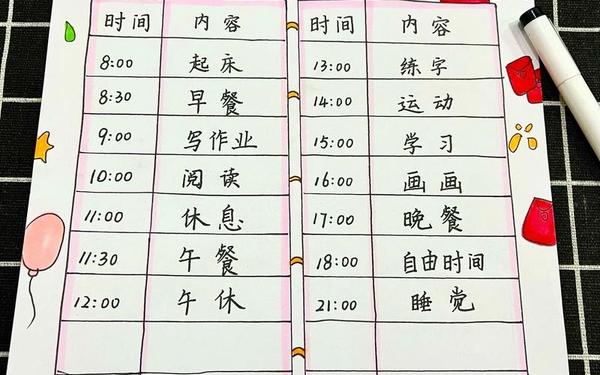 时间 内容
8:00 起床
8:30 早餐
9:00 写作业
10:00 阅读
11:00 休息
11:30 午餐
12:00 午休
时间 内容
13:00 练字
14:00 运动
15:00 学习
16:00 画画
17:00 晚餐
18:00 自由时间
21:00 睡觉